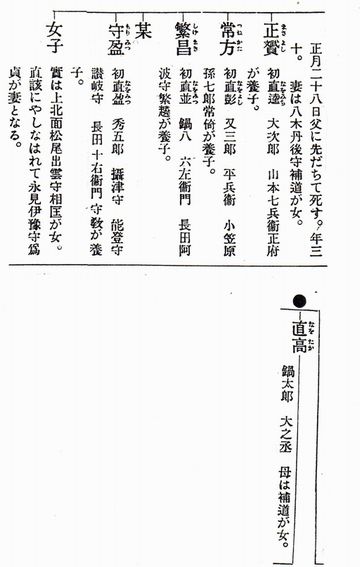 正月二十八日父に先だちて死す。年三
十。妻は八木丹後守補道が女。
正賀 まさよし 初直達 なをみち 大次郎 山本七兵衞正府
が養子。
常方 つねかた 初直彭 又三郎 平兵衞 小笠原
孫七郎常倚が養子。
繁昌 しげまさ 初直並 なをみつ 鍋八 六左衞門 長田阿
波守繁趨が養子。
某
守盈 もりみつ 初直盈 なをみつ 秀五郎 攝津守 能登守
讃岐守 長田十右衞門守敎が養
子。
女子 實は上北面松尾出雲守相匡が女。
直該にやしなはれて永見伊豫守爲
貞が妻となる。
● 直高 なをたか
鍋太郎 大之丞 母は補道が女。